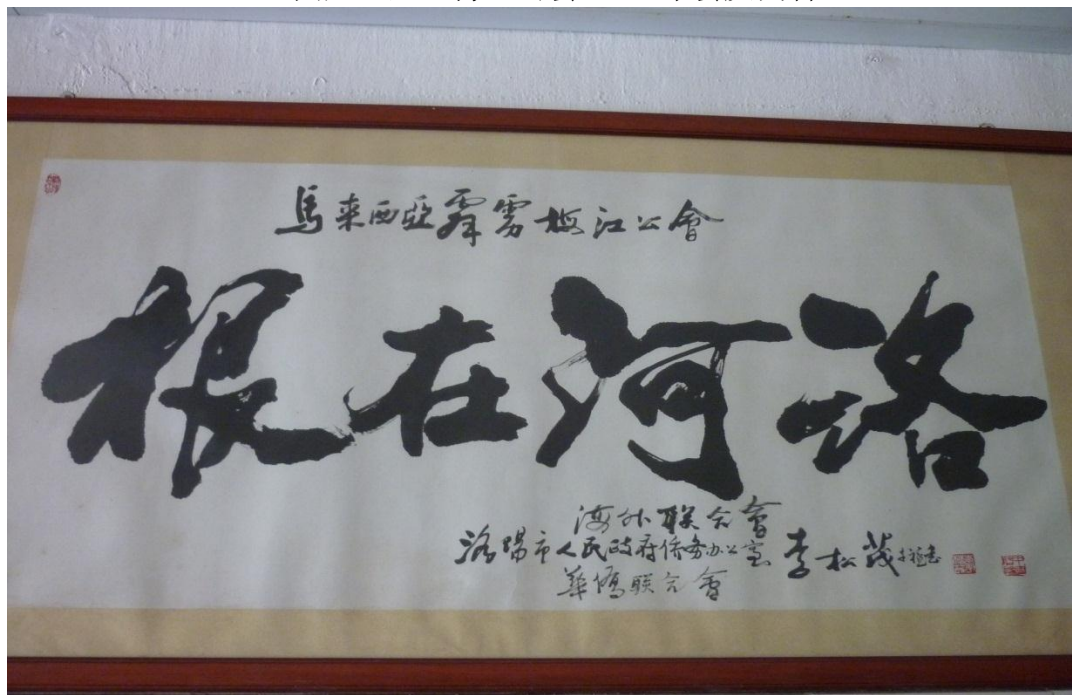 馬来西亞霹雳梅江公會
根在河洛
海外联合會
洛陽市人民政府侨务办公室
華僑联合會
李松茂